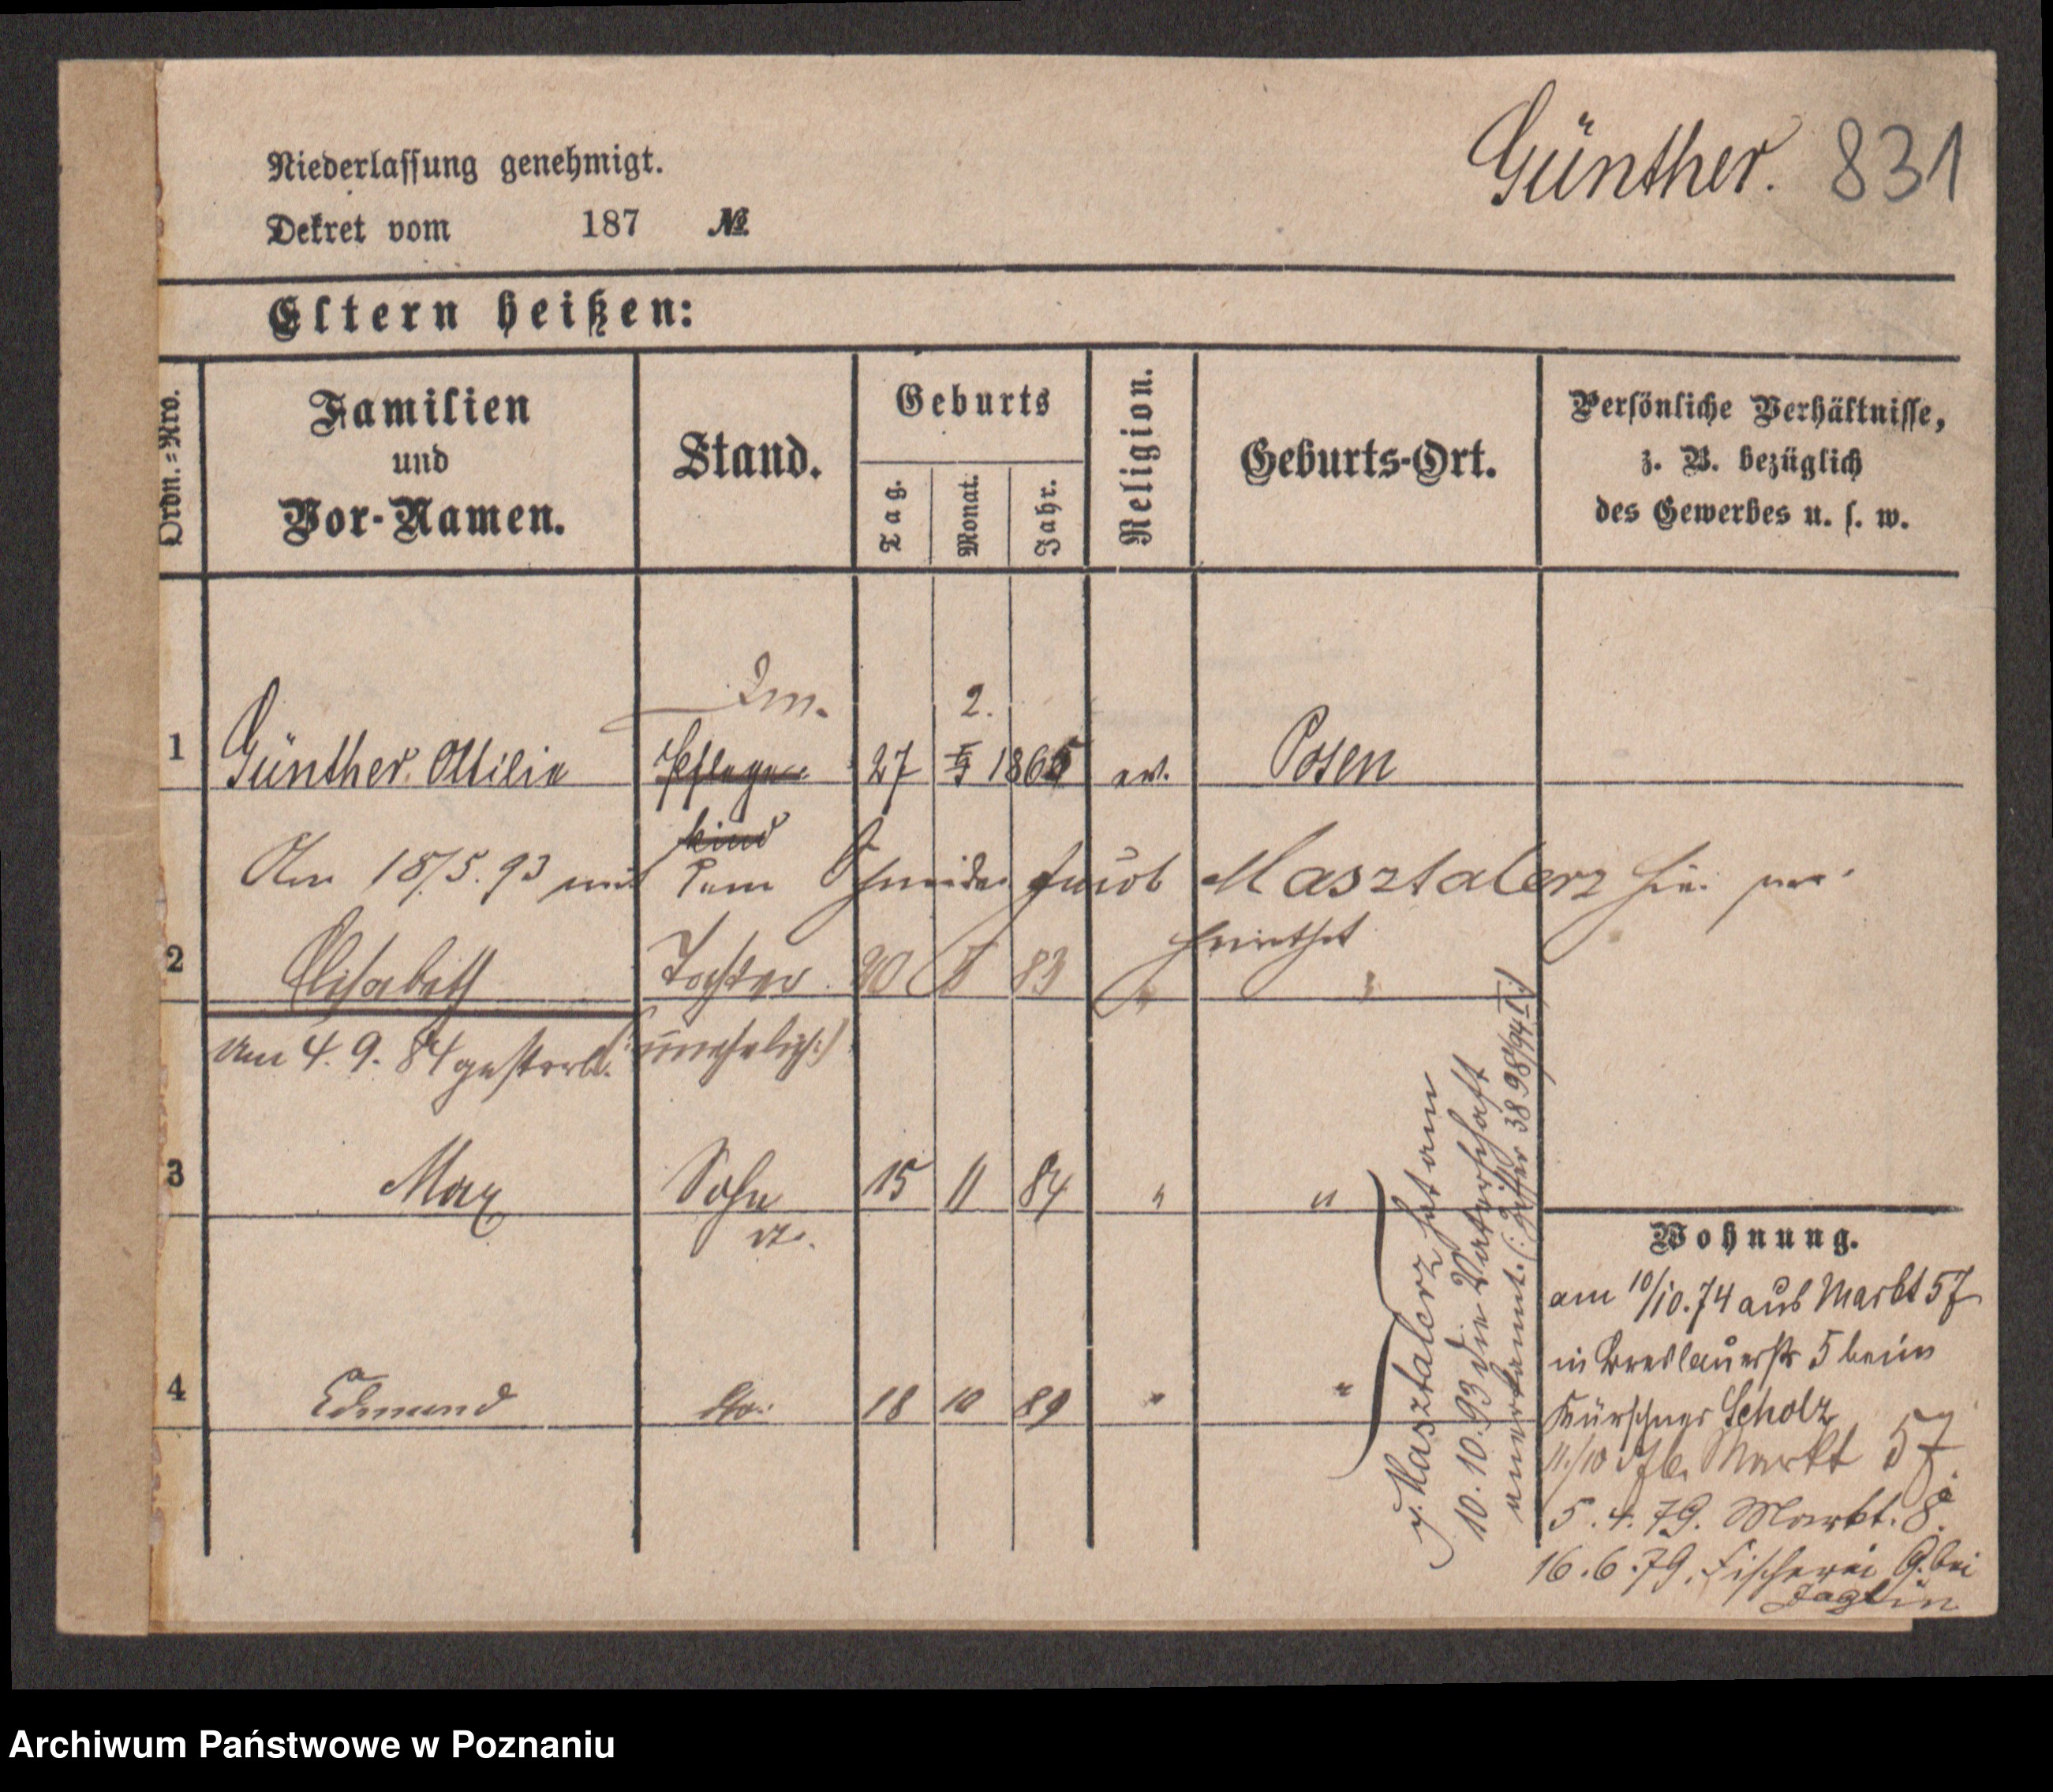 Günther. 831
Niederlassung genehmigt.
Dekret vom 187 №
Eltern heißen:
Ordn.=Nro.
Familien
und
Vor-Namen.
Stand.
Geburts
Tag.
Monat.
Jahr.
Religion.
Geburts-Ort.
Persönliche Verhältnisse,
z. B. bezüglich
des Gewerbes u. s. w.
2.
1 Günther Ottilie Pflege- 27 1865 ev. Posen
kind
Am 18/5. 93 mit dem Schneider Jacob Masztalerz hier ver-
heirathet
2 Elisabeth Tochter 83 "
am 4. 9. 84 gestorb. (unehelich:)
3 Max Sohn 15 11 84 " "
4 Edmund do. 18 10 89 " "
p. Masztalerz hat am
10. 10. 93 die Vaterschaft
anerkannt. (: 3898/94 I:)
Wohnung.
am 10/10. 74 aus Markt 57
in Breslauerstr 5 beim
Kürschner Scholz
11/10 76. Markt 57.
5. 4. 79. Markt. 8.
16. 6. 79. Fischerei 9. bei
Jaglin
Archiwum Państwowe w Poznaniu